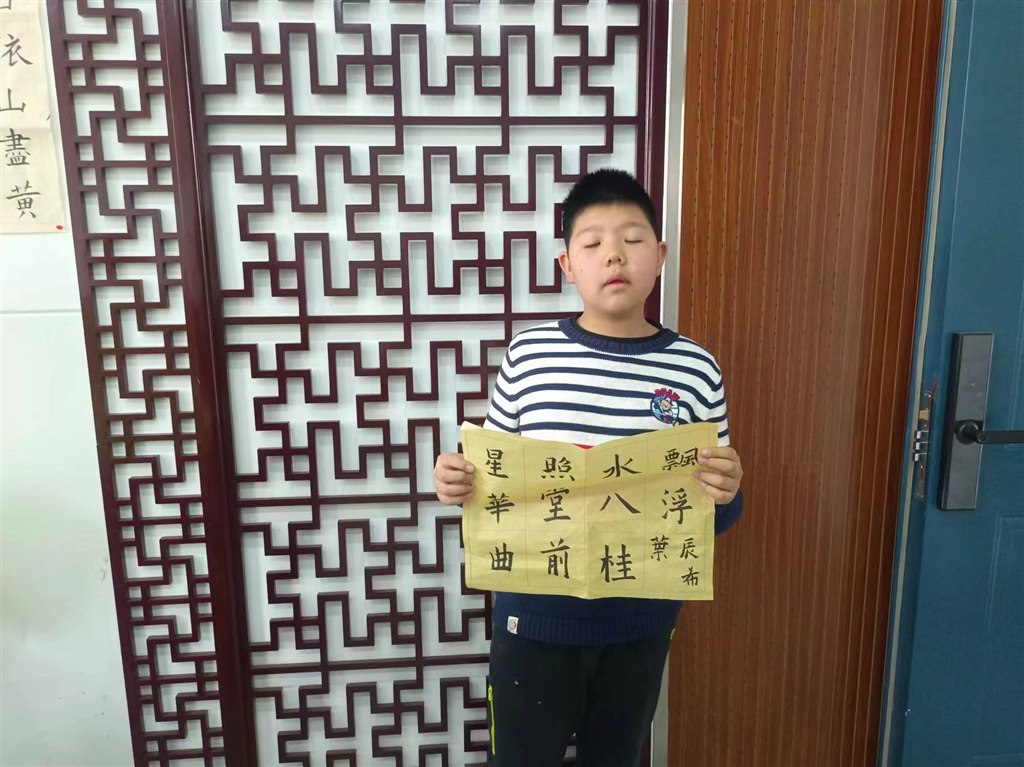 衣山盡黃
星華曲
照堂前
水八桂
飄浮
葉辰希